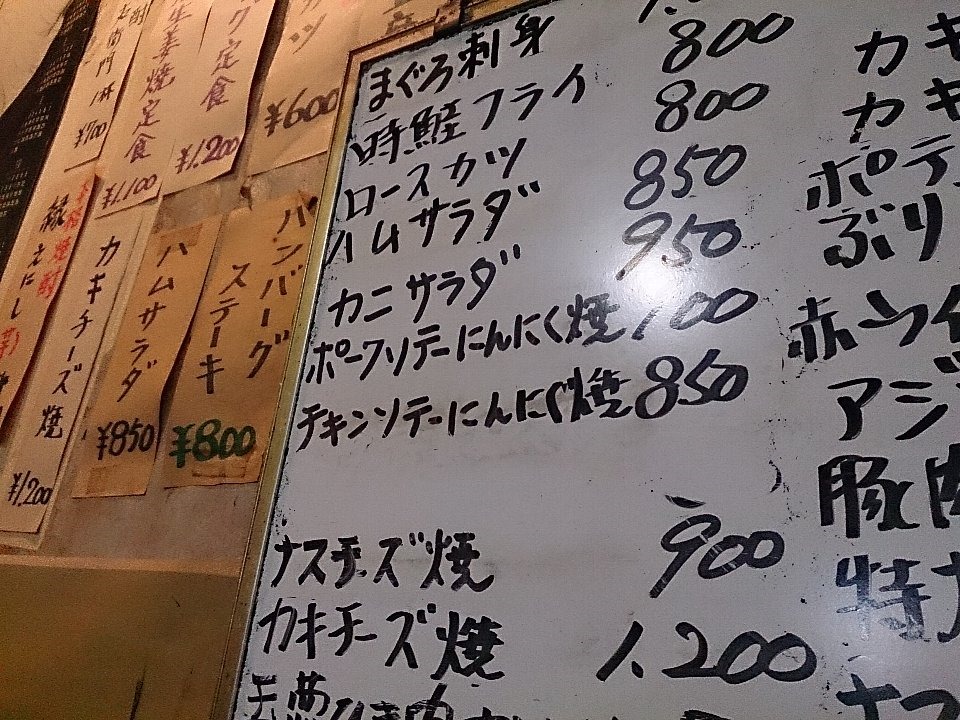 グ定食
¥1,200
ツ
¥600
生姜焼定食
¥1,100
¥700
縁
カキチーズ焼
¥1,200
ハムサラダ
¥850
ハンバーグ
ステーキ
¥800
まぐろ刺身
時鮭フライ 800
ロースカツ 800
ハムサラダ 850
カニサラダ 950
ポークソテーにんにく焼
チキンソテーにんにく焼 850
ナスチーズ焼 900
カキチーズ焼 1,200
カキ
カキ
ポテ
ぶり
赤ウイ
アジ
豚肉
特
ナス